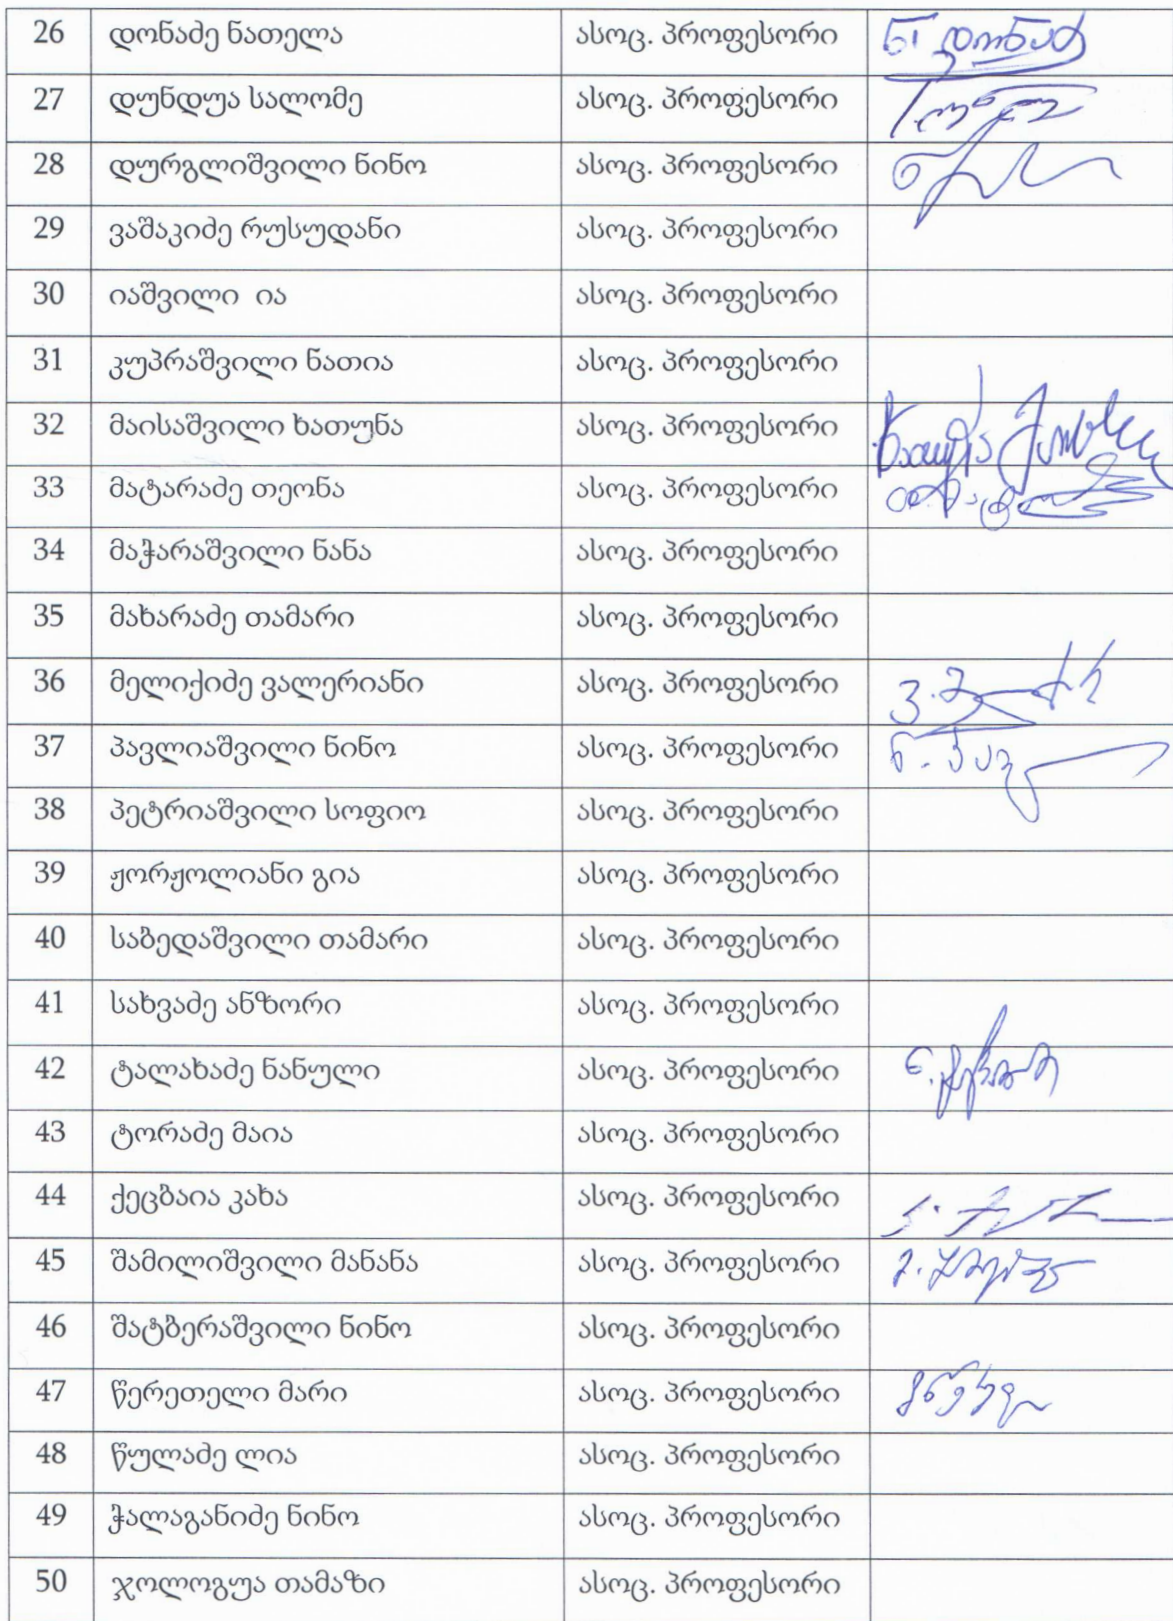 26 დონაძე ნათელა ასოც. პროფესორი
27 დუნდუა სალომე ასოც. პროფესორი
28 დურგლიშვილი ნინო ასოც. პროფესორი
29 ვაშაკიძე რუსუდანი ასოც. პროფესორი
30 იაშვილი ია ასოც. პროფესორი
31 კუპრაშვილი ნათია ასოც. პროფესორი
32 მაისაშვილი ხათუნა ასოც. პროფესორი
33 მატარაძე თეონა ასოც. პროფესორი
34 მაჭარაშვილი ნანა ასოც. პროფესორი
35 მახარაძე თამარი ასოც. პროფესორი
36 მელიქიძე ვალერიანი ასოც. პროფესორი
37 პავლიაშვილი ნინო ასოც. პროფესორი
38 პეტრიაშვილი სოფიო ასოც. პროფესორი
39 ჟორჟოლიანი გია ასოც. პროფესორი
40 საბედაშვილი თამარი ასოც. პროფესორი
41 სახვაძე ანზორი ასოც. პროფესორი
42 ტალახაძე ნანული ასოც. პროფესორი
43 ტორაძე მაია ასოც. პროფესორი
44 ქეცბაია კახა ასოც. პროფესორი
45 შამილიშვილი მანანა ასოც. პროფესორი
46 შატბერაშვილი ნინო ასოც. პროფესორი
47 წერეთელი მარი ასოც. პროფესორი
48 წულაძე ლია ასოც. პროფესორი
49 ჭალაგანიძე ნინო ასოც. პროფესორი
50 ჯოლოგუა თამაზი ასოც. პროფესორი